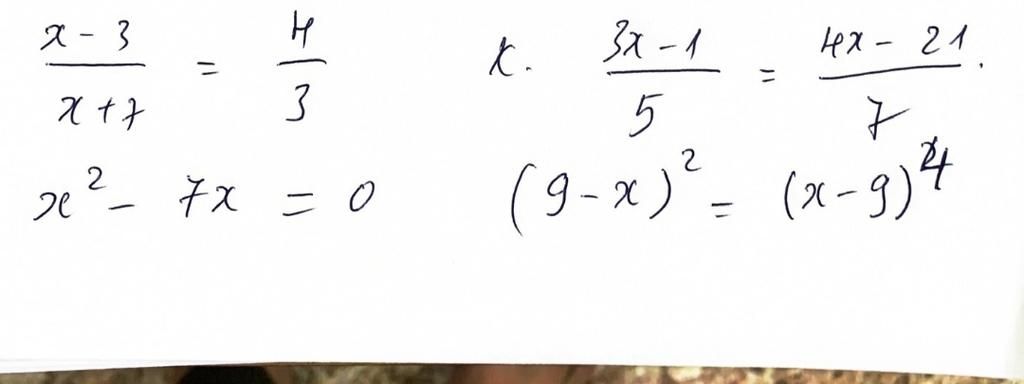 x - 3 / x + 7 = 4 / 3    k. 3x - 1 / 5 = 4x - 21 / 7.
x² - 7x = 0    (9 - x)² = (x - 9)⁴